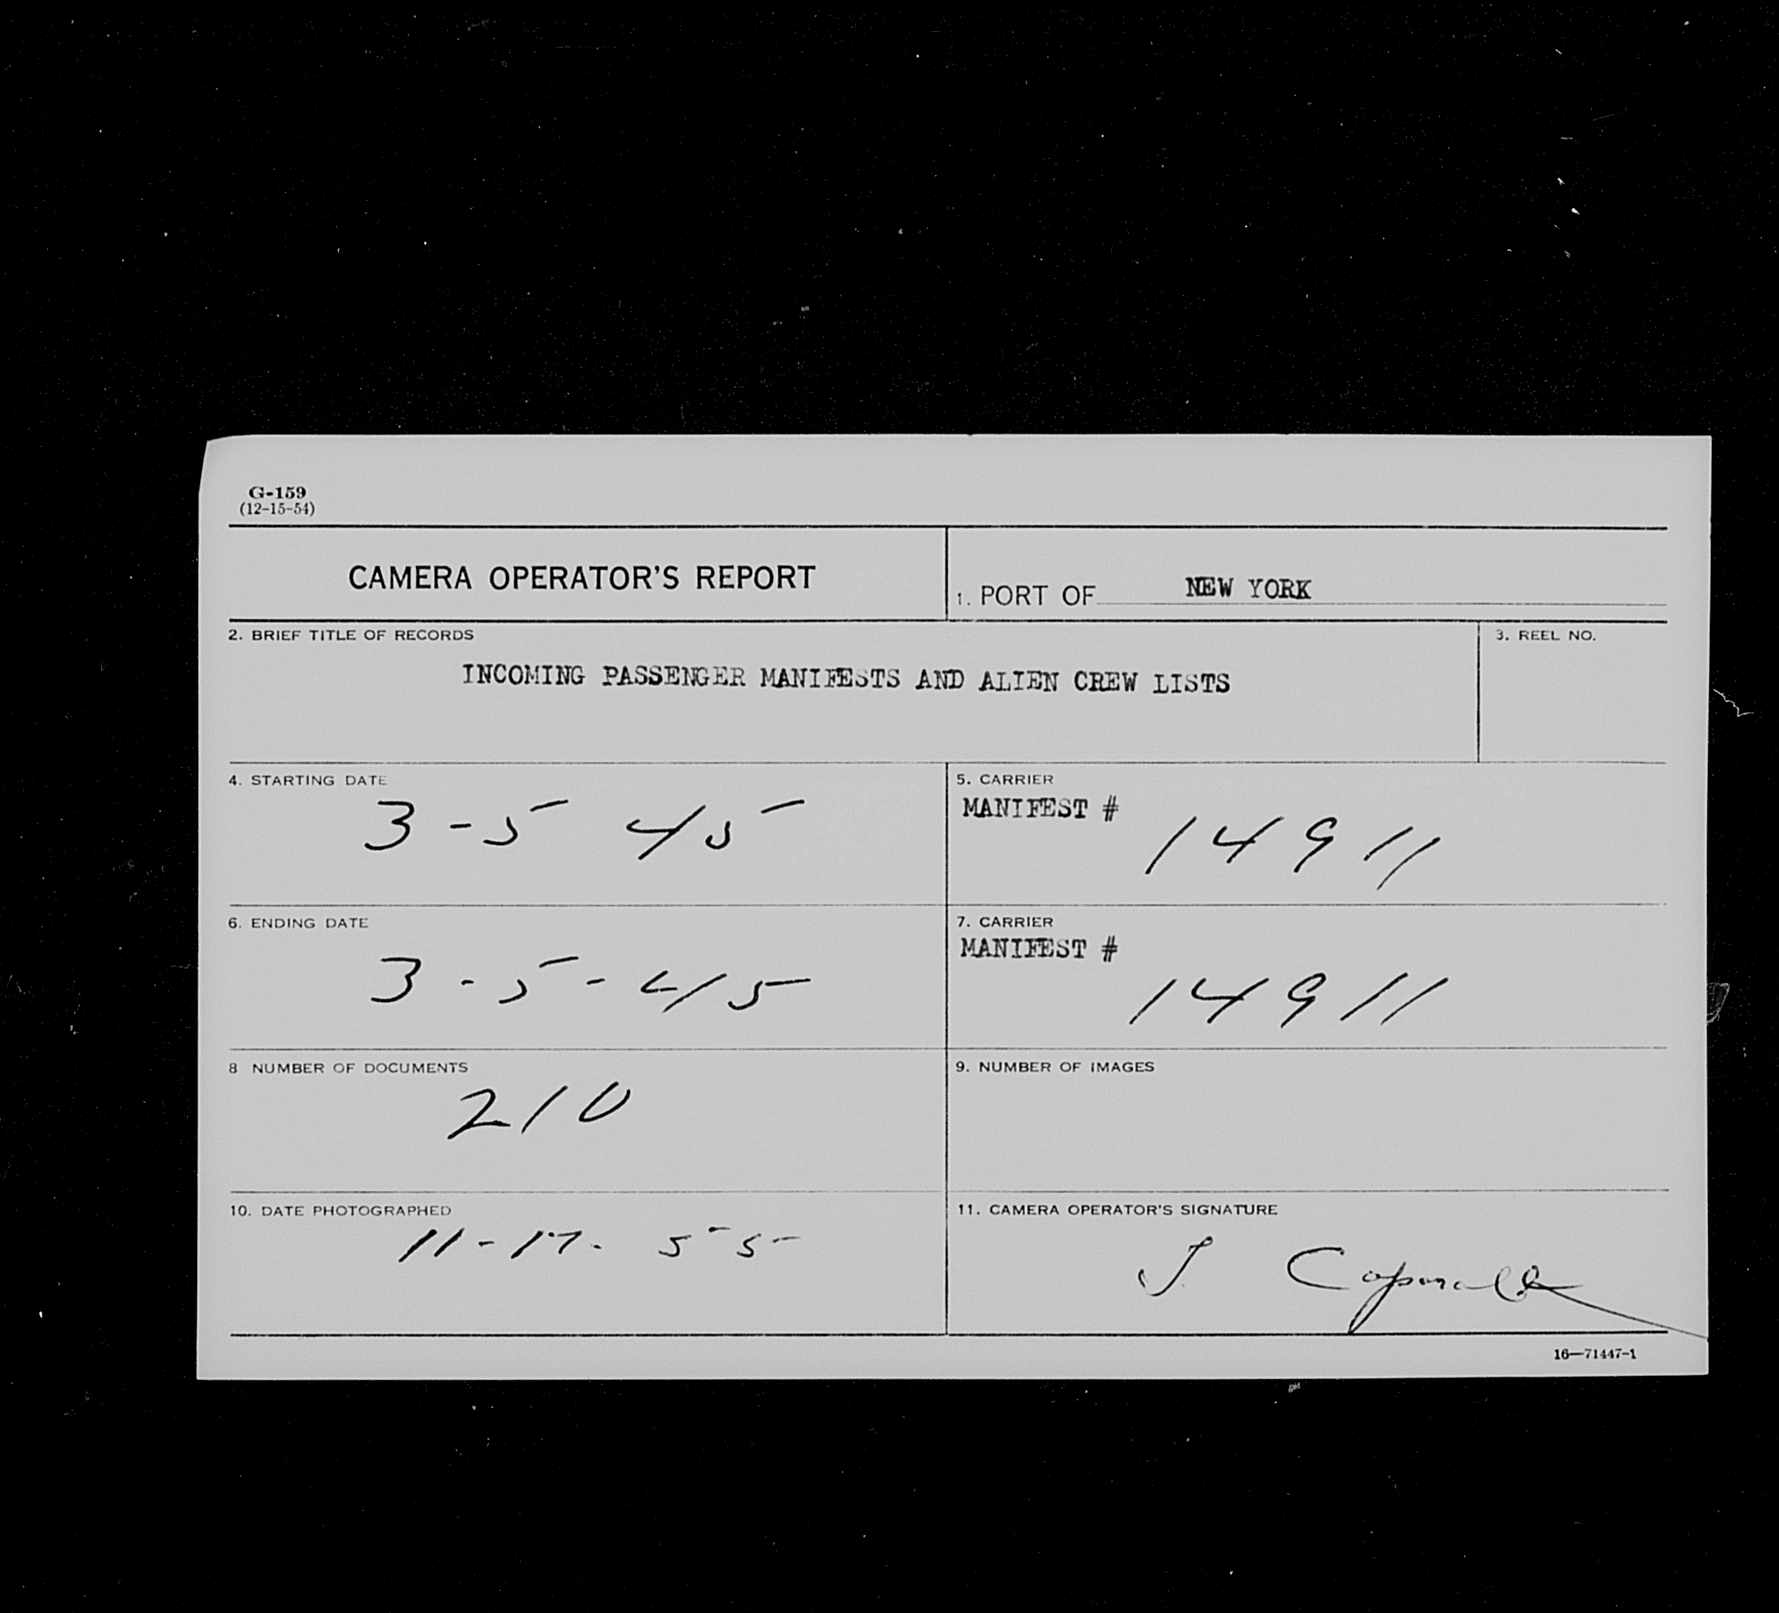 G-159
(12-15-54)
CAMERA OPERATOR'S REPORT
1. PORT OF NEW YORK
2. BRIEF TITLE OF RECORDS
3. REEL NO.
INCOMING PASSENGER MANIFESTS AND ALIEN CREW LISTS
4. STARTING DATE
3-5 45
5. CARRIER
MANIFEST #
14911
6. ENDING DATE
3-5-45
7. CARRIER
MANIFEST #
14911
8 NUMBER OF DOCUMENTS
210
9. NUMBER OF IMAGES
10. DATE PHOTOGRAPHED
11-17-55
11. CAMERA OPERATOR'S SIGNATURE
J.
16—71447-1